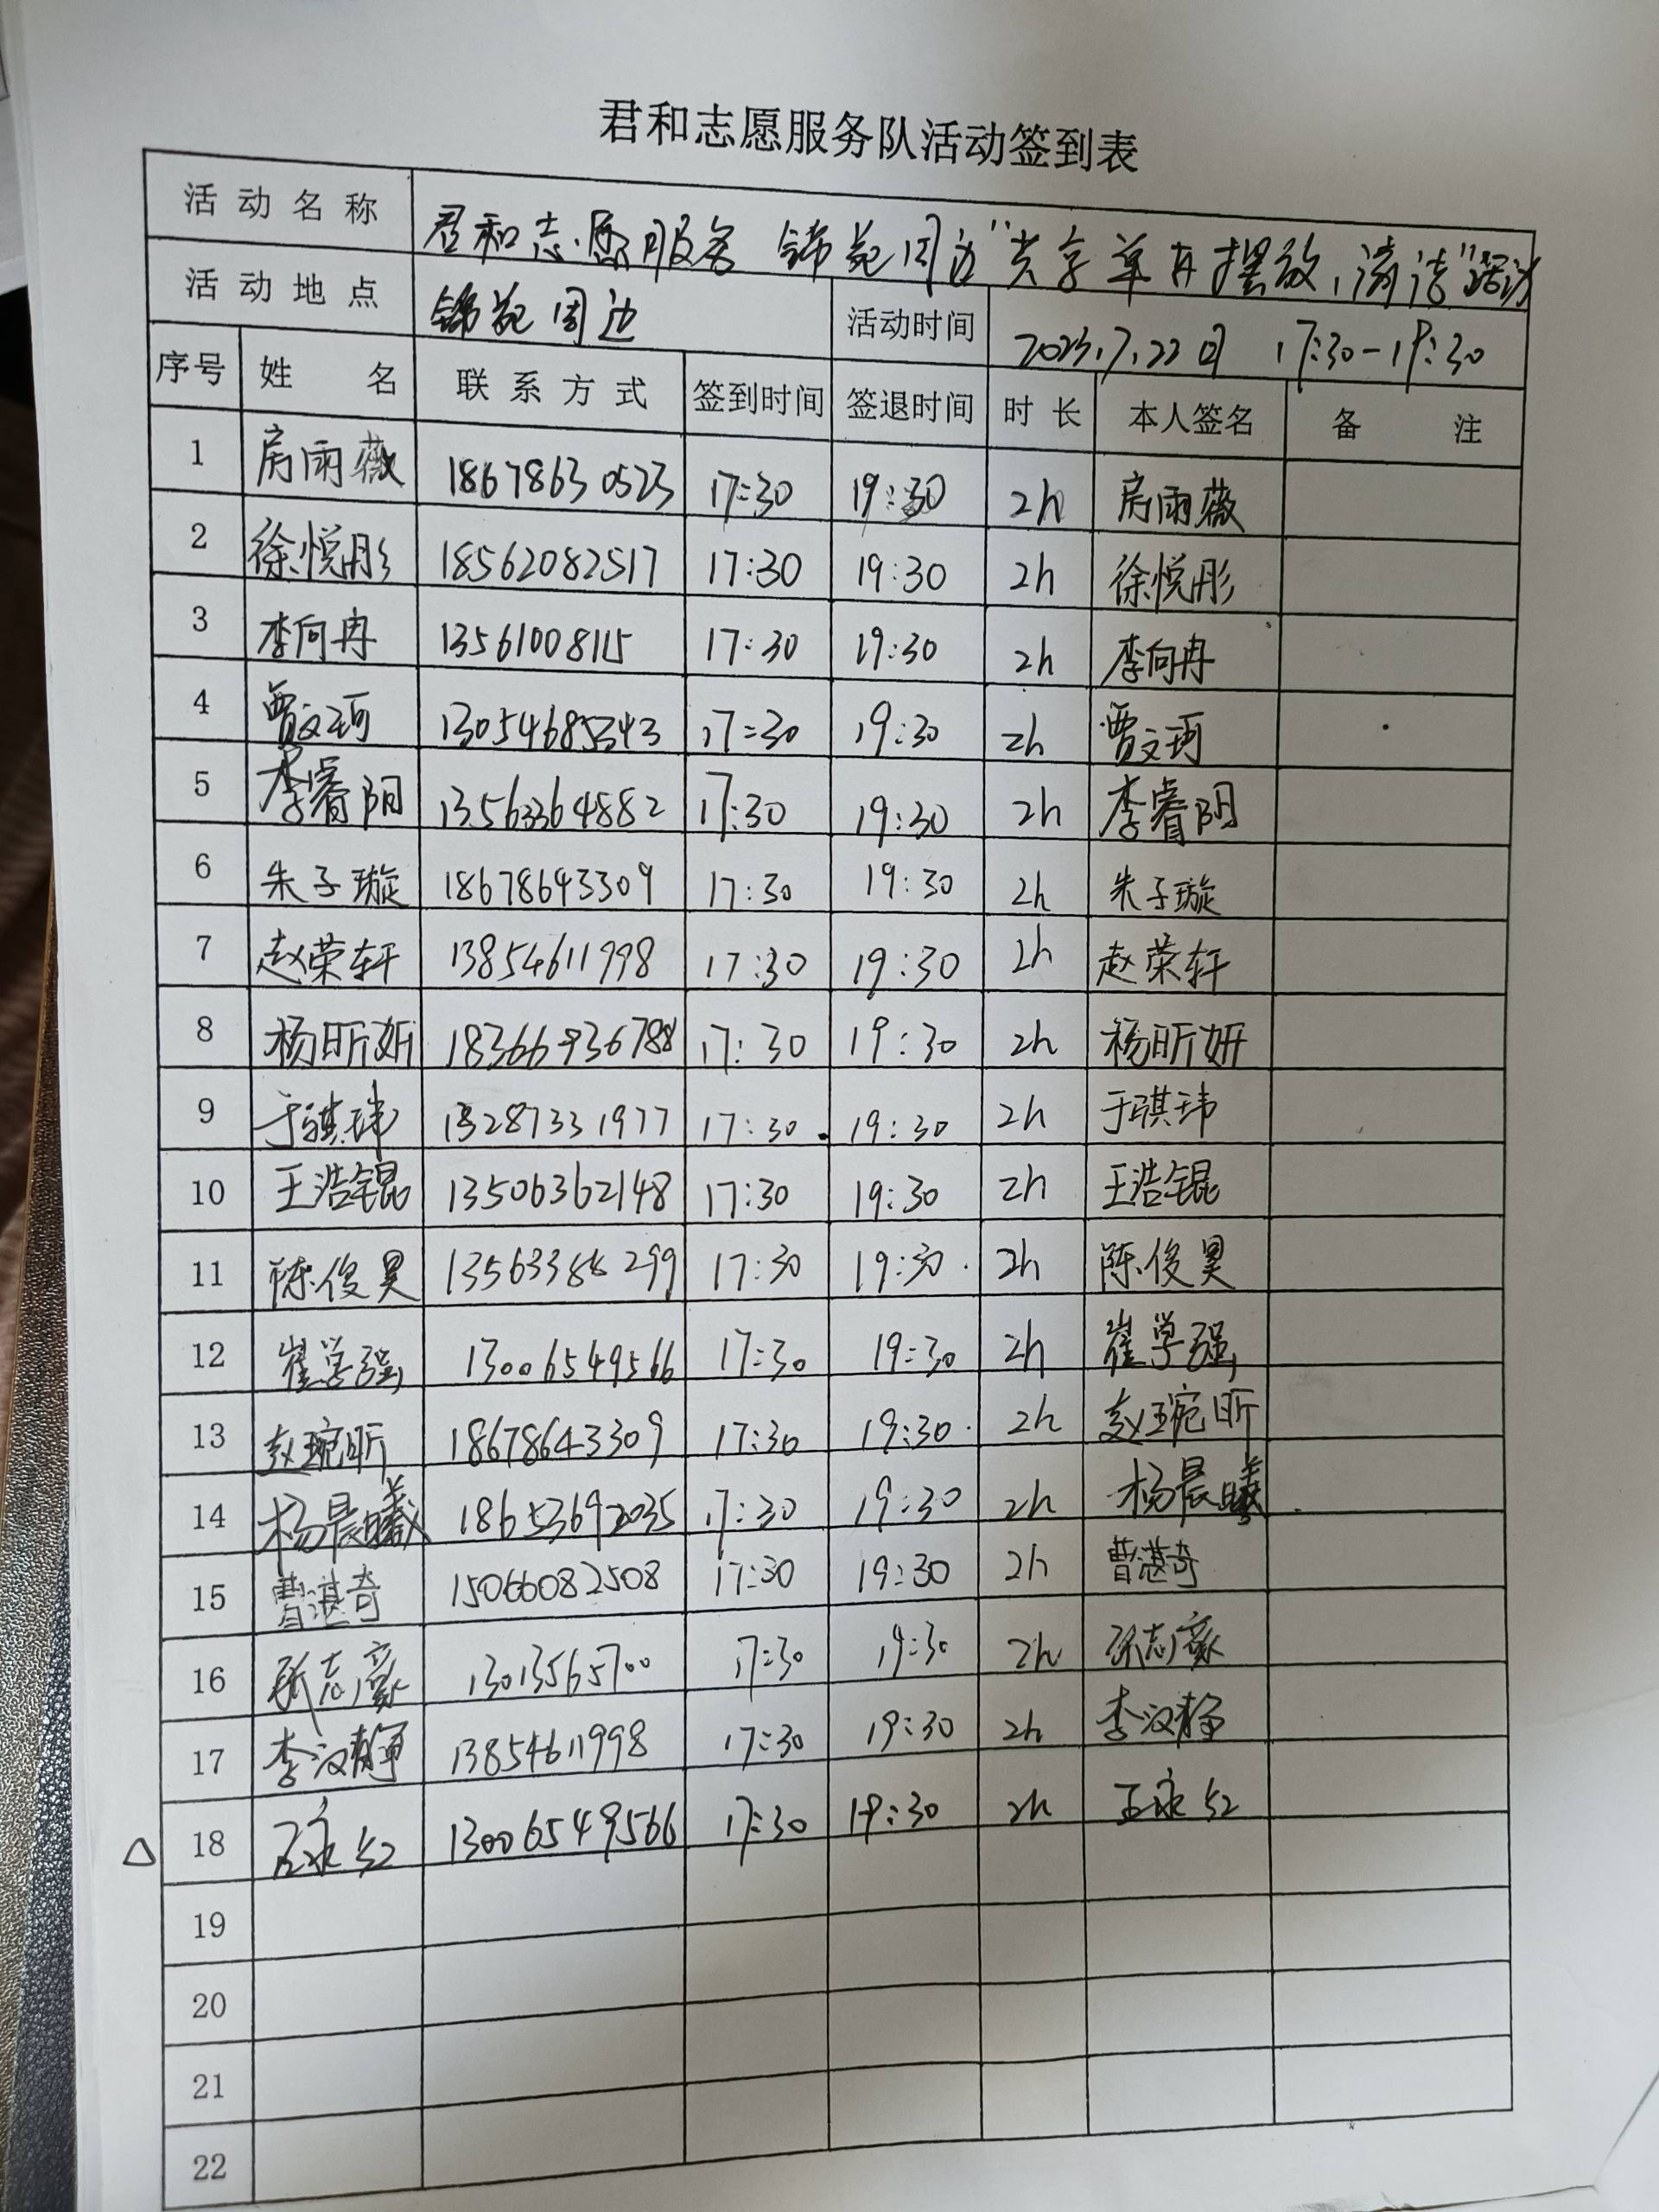 君和志愿服务队活动签到表
活动名称 君和志愿服务 锦苑周边"共享单车摆放,清洁"活动
活动地点 锦苑周边 活动时间 2023.7.22日 17:30-19:30
序号 姓名 联系方式 签到时间 签退时间 时长 本人签名 备注
1 房雨薇 18678630523 17:30 19:30 2h 房雨薇
2 徐悦彤 18562082517 17:30 19:30 2h 徐悦彤
3 李向冉 13561008115 17:30 19:30 2h 李向冉
4 贾文珂 13054685343 17:30 19:30 2h 贾文珂
5 李睿阳 13563364882 17:30 19:30 2h 李睿阳
6 朱子璇 18678643309 17:30 19:30 2h 朱子璇
7 赵荣轩 13854611998 17:30 19:30 2h 赵荣轩
8 杨昕妍 17:30 19:30 2h 杨昕妍
9 于骐玮 13287331977 17:30 19:30 2h 于骐玮
10 王浩锟 13506362148 17:30 19:30 2h 王浩锟
11 陈俊昊 17:30 19:30 2h 陈俊昊
12 崔学强 13006549566 17:30 19:30 2h 崔学强
13 赵琬昕 18678643309 17:30 19:30 2h 赵琬昕
14 杨晨曦 18653692035 17:30 19:30 2h 杨晨曦
15 曹湛奇 15066082508 17:30 19:30 2h 曹湛奇
16 志豪 13013565700 17:30 19:30 2h 志豪
17 李汶静 13854611998 17:30 19:30 2h 李汶静
△ 18 13006549566 17:30 19:30 2h
19
20
21
22